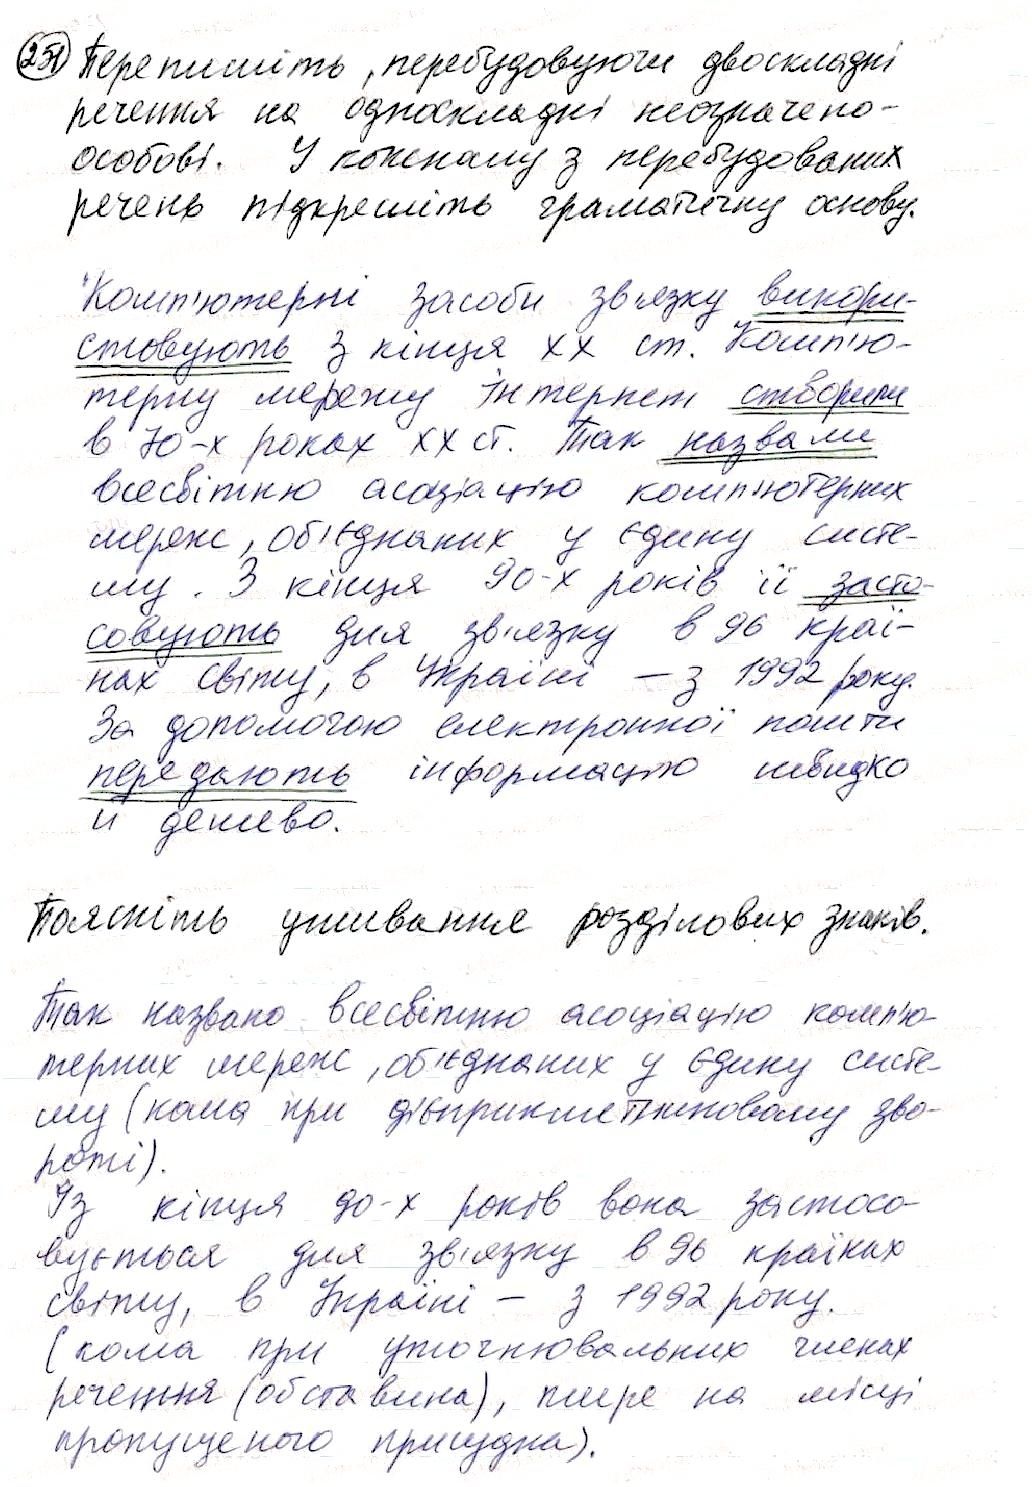 251 Перепишіть, перебудовуючи двоскладні
речення на односкладні неозначено-
особові. У кожному з перебудованих
речень підкресліть граматичну основу.
Комп'ютерні засоби зв'язку викори-
стовують з кінця ХХ ст. Комп'ю-
терну мережу інтернет створили
в 70-х роках ХХ ст. Так назвали
всесвітню асоціацію комп'ютерних
мереж, об'єднаних у єдину систе-
му. З кінця 90-х років її засто-
совують для зв'язку в 96 краї-
нах світу, в Україні – з 1992 року.
За допомогою електронної пошти
передають інформацію швидко
й дешево.
Поясніть уживання розділових знаків.
Так названо всесвітню асоціацію комп'ю-
терних мереж, об'єднаних у єдину систе-
му (кома при дієприкметниковому зво-
роті).
Із кінця 90-х років вона застосо-
вується для зв'язку в 96 країнах
світу, в Україні – з 1992 року.
(кома при уточнювальних членах
речення (обставина), тире на місці
пропущеного присудка).